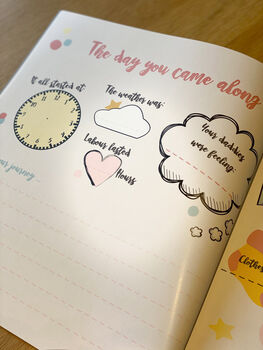 The day you came along
It all started at:
12
11
1
10
2
9
3
8
4
7
5
6
The weather was:
Labour lasted
Hours
Your daddies
were feeling:
our journey
Clothes